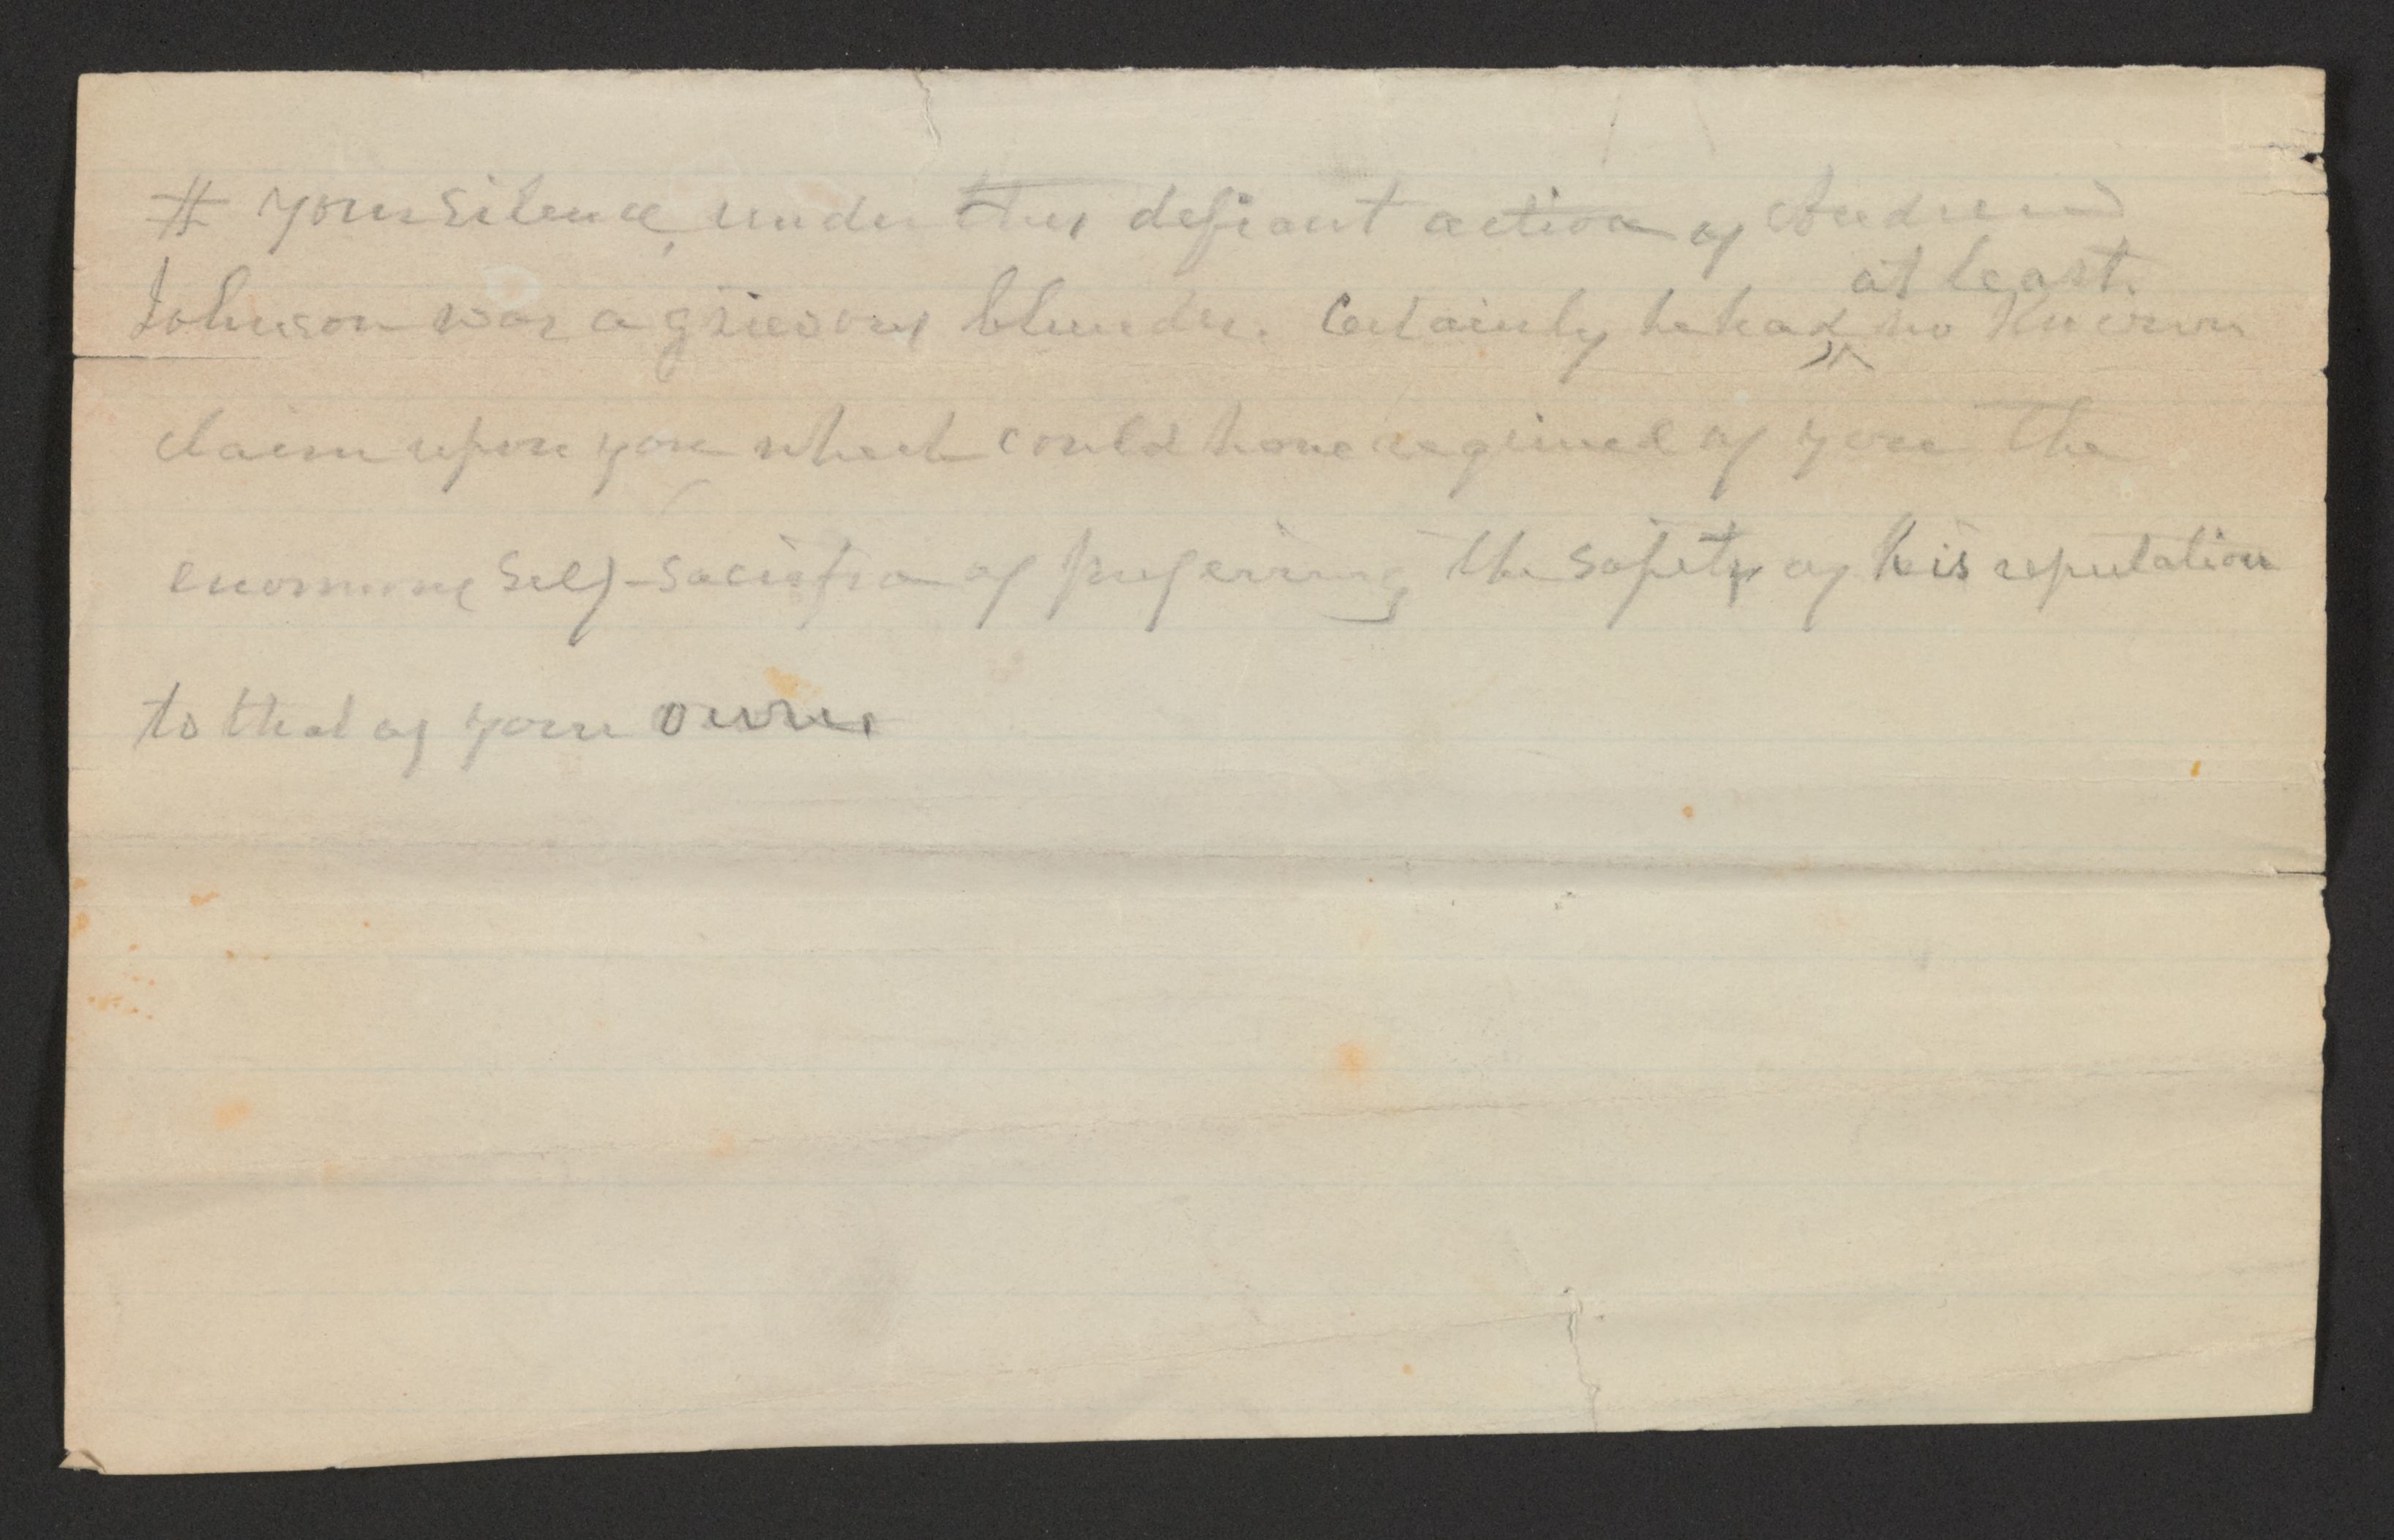 # your silence, under this defiant action of Andrew
at least
Johnson was a grievous blunder. Certainly he had no known
claim upon you which could have required of you the
enormous self-sacrifice of preferring the safety of his reputation
to that of your own.